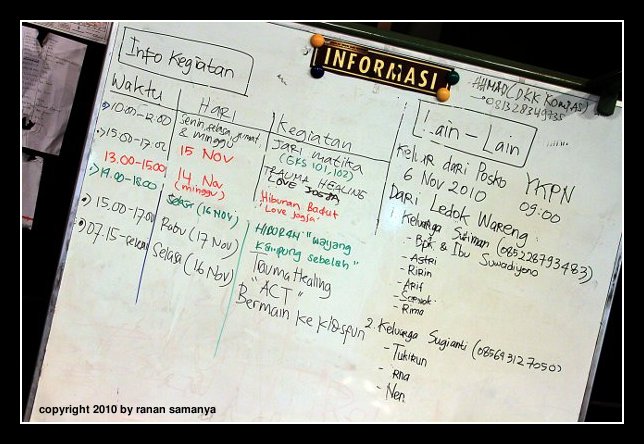 INFORMASI
Info Kegiatan
AHMAD (DKK Kompas)
081328349735
Waktu Hari Kegiatan
10.00-12.00 Senin, Selasa, Jumat & minggu Jari matika (GKS 101, 102)
15.00-17.00 15 Nov TRAUMA HEALING LOVE JOGJA
13.00-15.00 14 Nov (minggu) Hiburan Badut "Love Jogja"
14.00-18.00 Selasa (16 Nov) HIBURAN "Wayang Kampung sebelah"
15.00-17.00 Rabu (17 Nov) Trauma Healing "ACT"
07.15- Selasa (16 Nov) Bermain ke
Lain - Lain
Keluar dari Posko YKPN
6 Nov 2010 09:00
Dari Ledok Wareng:
1. Keluarga Sutiman (085228793483)
- Bpk & Ibu Suwadiyono
- Astri
- Ririn
- Arif
- Rima
2. Keluarga Sugianti (085693127050)
- Tukirun
- Rna
- Neri
copyright 2010 by ranan samanya